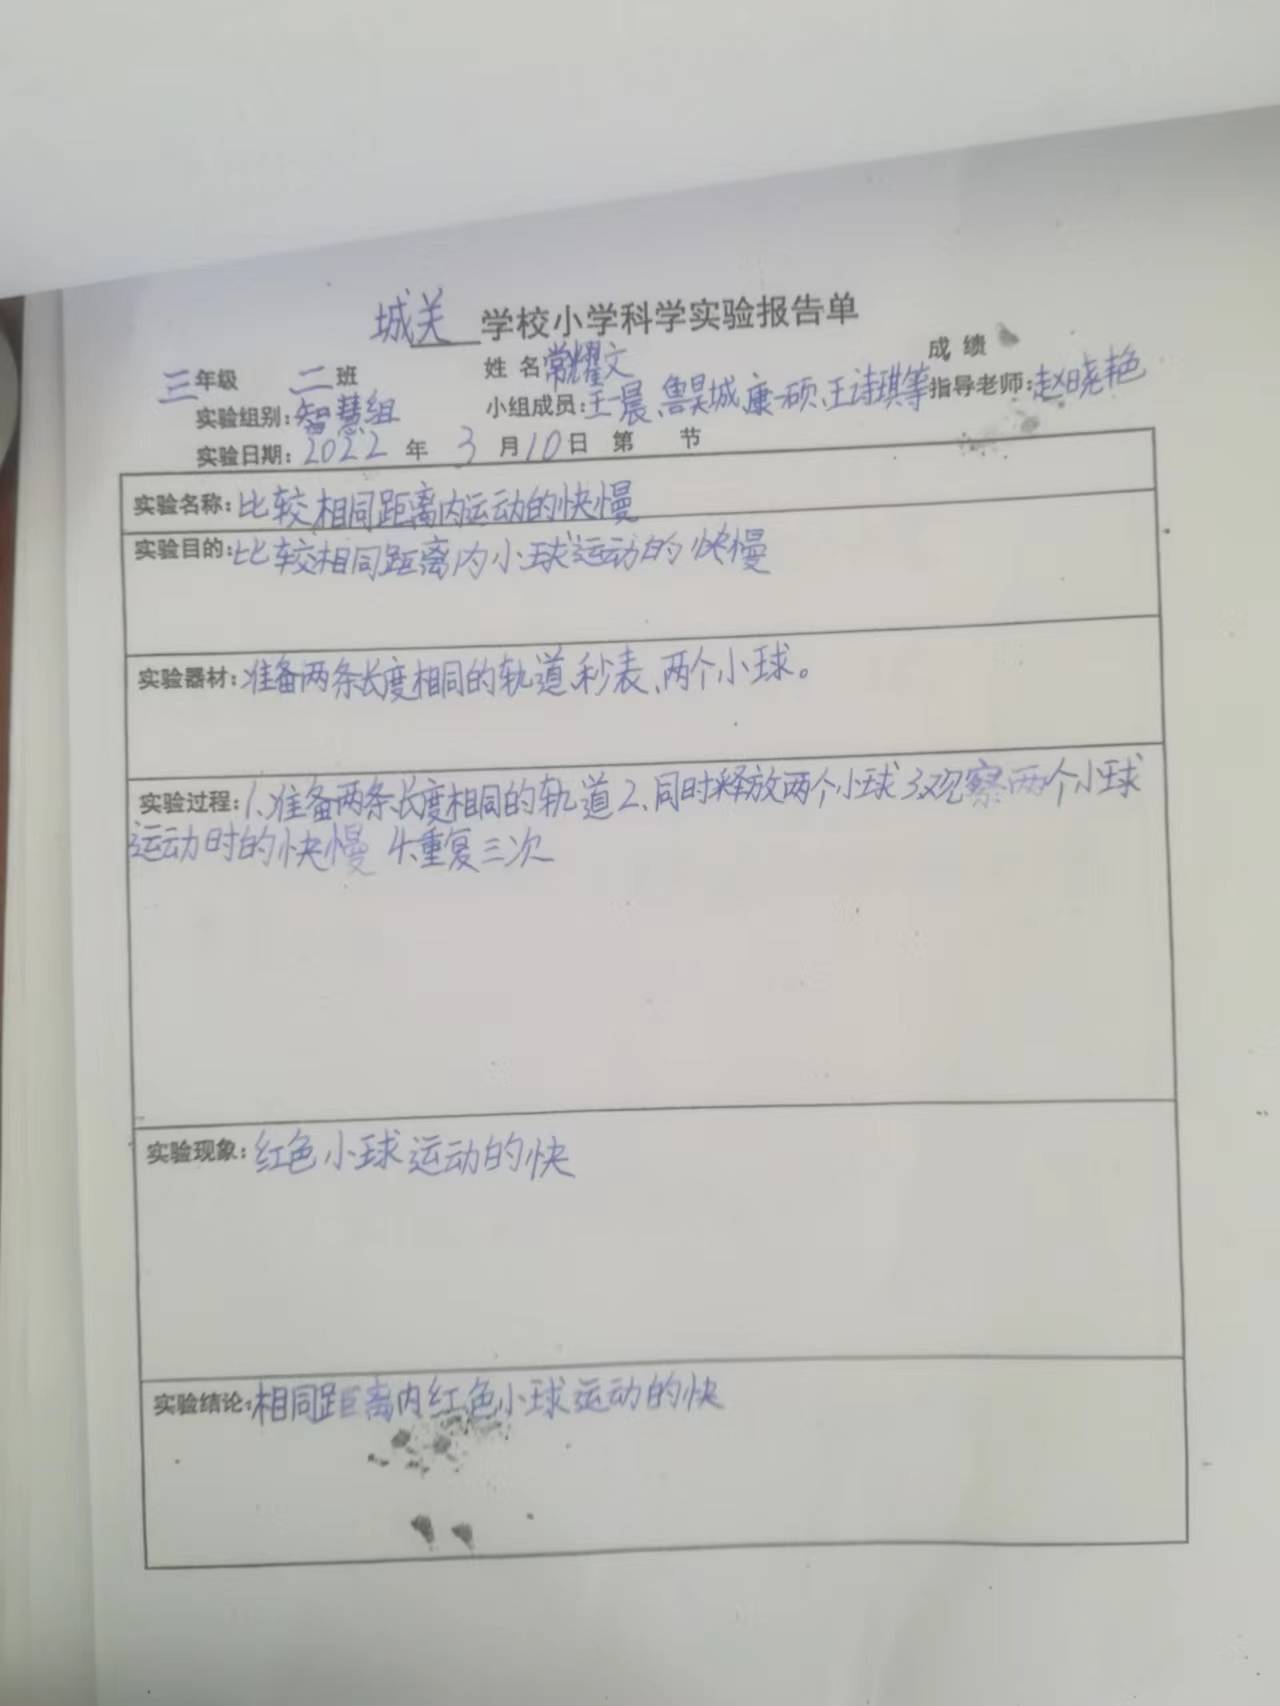 城关学校小学科学实验报告单
三年级 二班 姓名 常耀文 成绩
实验组别:智慧组 小组成员:王一晨、鲁昊城、康一硕、王诗琪等 指导老师:赵晓艳
实验日期:2022年3月10日 第 节
实验名称:比较相同距离内运动的快慢
实验目的:比较相同距离内小球运动的快慢
实验器材:准备两条长度相同的轨道、秒表、两个小球。
实验过程:1、准备两条长度相同的轨道2、同时释放两个小球3、观察两个小球
运动时的快慢 4、重复三次
实验现象:红色小球运动的快
实验结论:相同距离内红色小球运动的快